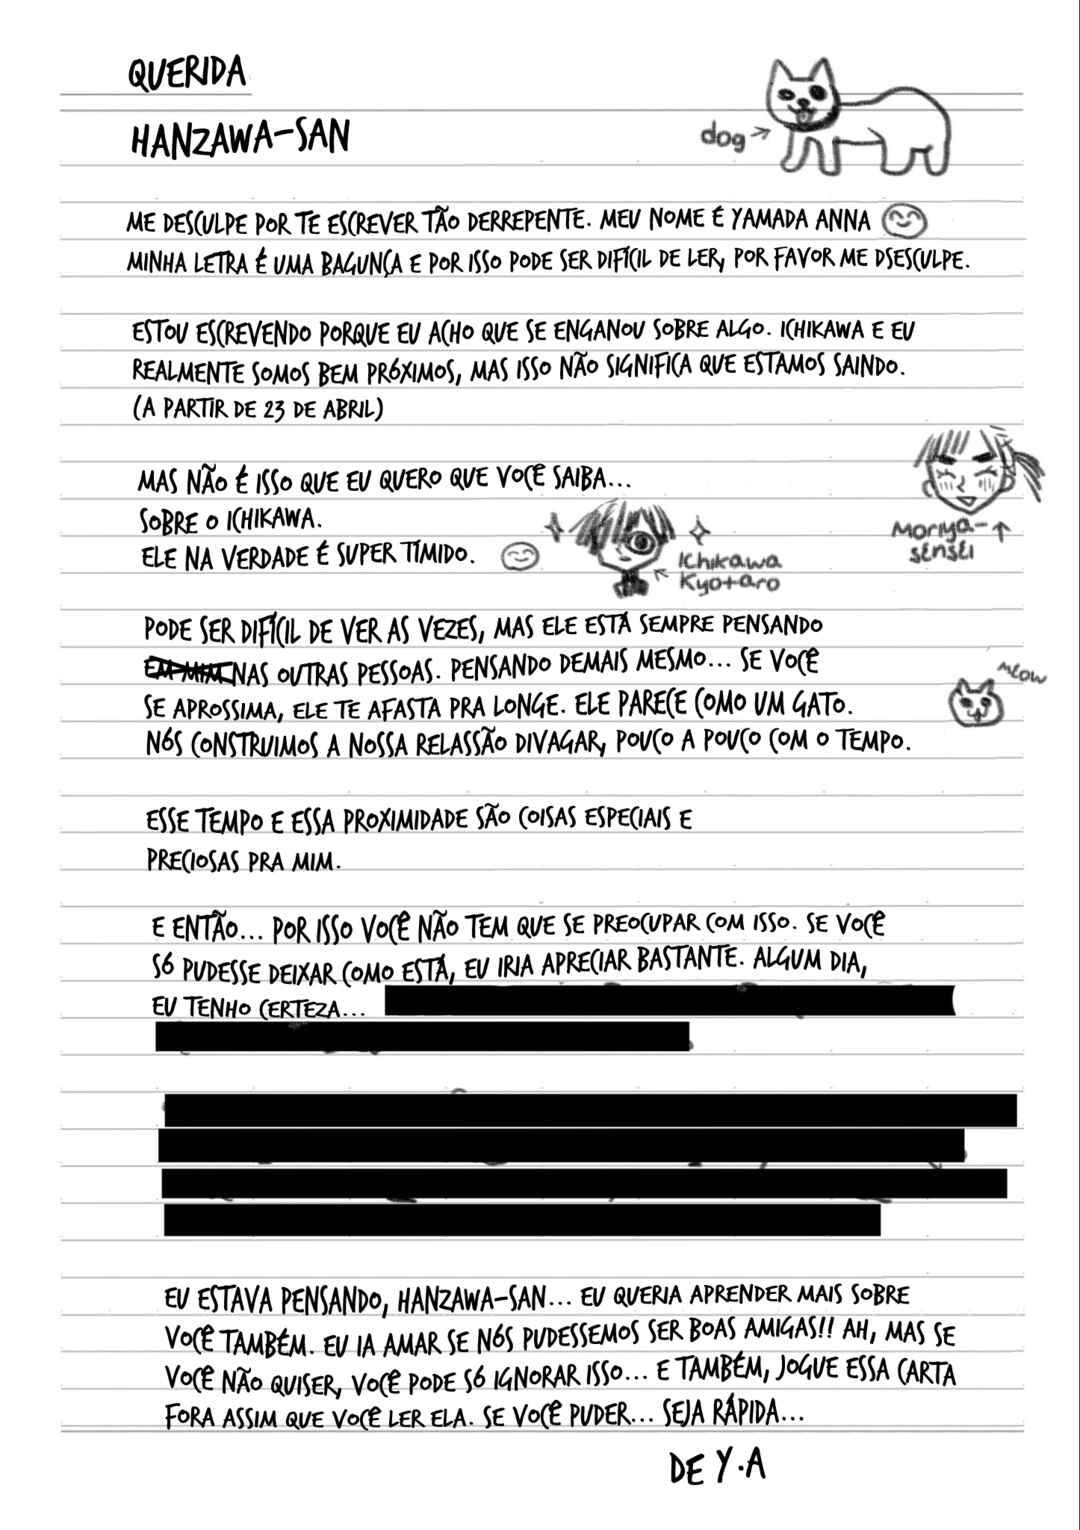 QUERIDA
HANZAWA-SAN
dog →
ME DESCULPE POR TE ESCREVER TÃO DERREPENTE. MEU NOME É YAMADA ANNA
MINHA LETRA É UMA BAGUNÇA E POR ISSO PODE SER DIFÍCIL DE LER, POR FAVOR ME DSESCULPE.
ESTOU ESCREVENDO PORQUE EU ACHO QUE SE ENGANOU SOBRE ALGO. ICHIKAWA E EU
REALMENTE SOMOS BEM PRÓXIMOS, MAS ISSO NÃO SIGNIFICA QUE ESTAMOS SAINDO.
(A PARTIR DE 23 DE ABRIL)
MAS NÃO É ISSO QUE EU QUERO QUE VOCÊ SAIBA...
SOBRE O ICHIKAWA.
ELE NA VERDADE É SUPER TÍMIDO.
Moriya-
sensei
Ichikawa
Kyotaro
PODE SER DIFÍCIL DE VER AS VEZES, MAS ELE ESTÁ SEMPRE PENSANDO
EM MIM NAS OUTRAS PESSOAS. PENSANDO DEMAIS MESMO... SE VOCÊ
SE APROSSIMA, ELE TE AFASTA PRA LONGE. ELE PARECE COMO UM GATO.
meow
NÓS CONSTRUIMOS A NOSSA RELASSÃO DIVAGAR, POUCO A POUCO COM O TEMPO.
ESSE TEMPO E ESSA PROXIMIDADE SÃO COISAS ESPECIAIS E
PRECIOSAS PRA MIM.
E ENTÃO... POR ISSO VOCÊ NÃO TEM QUE SE PREOCUPAR COM ISSO. SE VOCÊ
SÓ PUDESSE DEIXAR COMO ESTÁ, EU IRIA APRECIAR BASTANTE. ALGUM DIA,
EU TENHO CERTEZA...
EU ESTAVA PENSANDO, HANZAWA-SAN... EU QUERIA APRENDER MAIS SOBRE
VOCÊ TAMBÉM. EU IA AMAR SE NÓS PUDESSEMOS SER BOAS AMIGAS!! AH, MAS SE
VOCÊ NÃO QUISER, VOCÊ PODE SÓ IGNORAR ISSO... E TAMBÉM, JOGUE ESSA CARTA
FORA ASSIM QUE VOCÊ LER ELA. SE VOCÊ PUDER... SEJA RÁPIDA...
DE Y.A